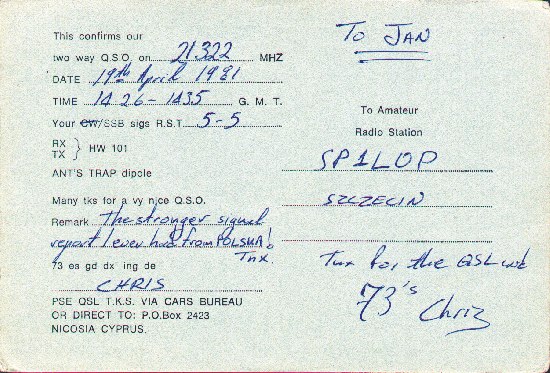 This confirms our
two way Q.S.O. on 21322 MHZ
DATE 19th April 1981
TIME 1426-1435 G. M. T.
Your CW/SSB sigs R.S.T. 5-5
RX
TX } HW 101
ANT'S TRAP dipole
Many tks for a vy nice Q.S.O.
Remark The stronger signal
report I ever had from POLSKA!
Tnx.
73 es gd dx ing de
CHRIS
PSE QSL T.K.S. VIA CARS BUREAU
OR DIRECT TO: P.O.Box 2423
NICOSIA CYPRUS.
To JAN
To Amateur
Radio Station
SP1LOP
SZCZECIN
Tnx for the QSL
73's
Chris